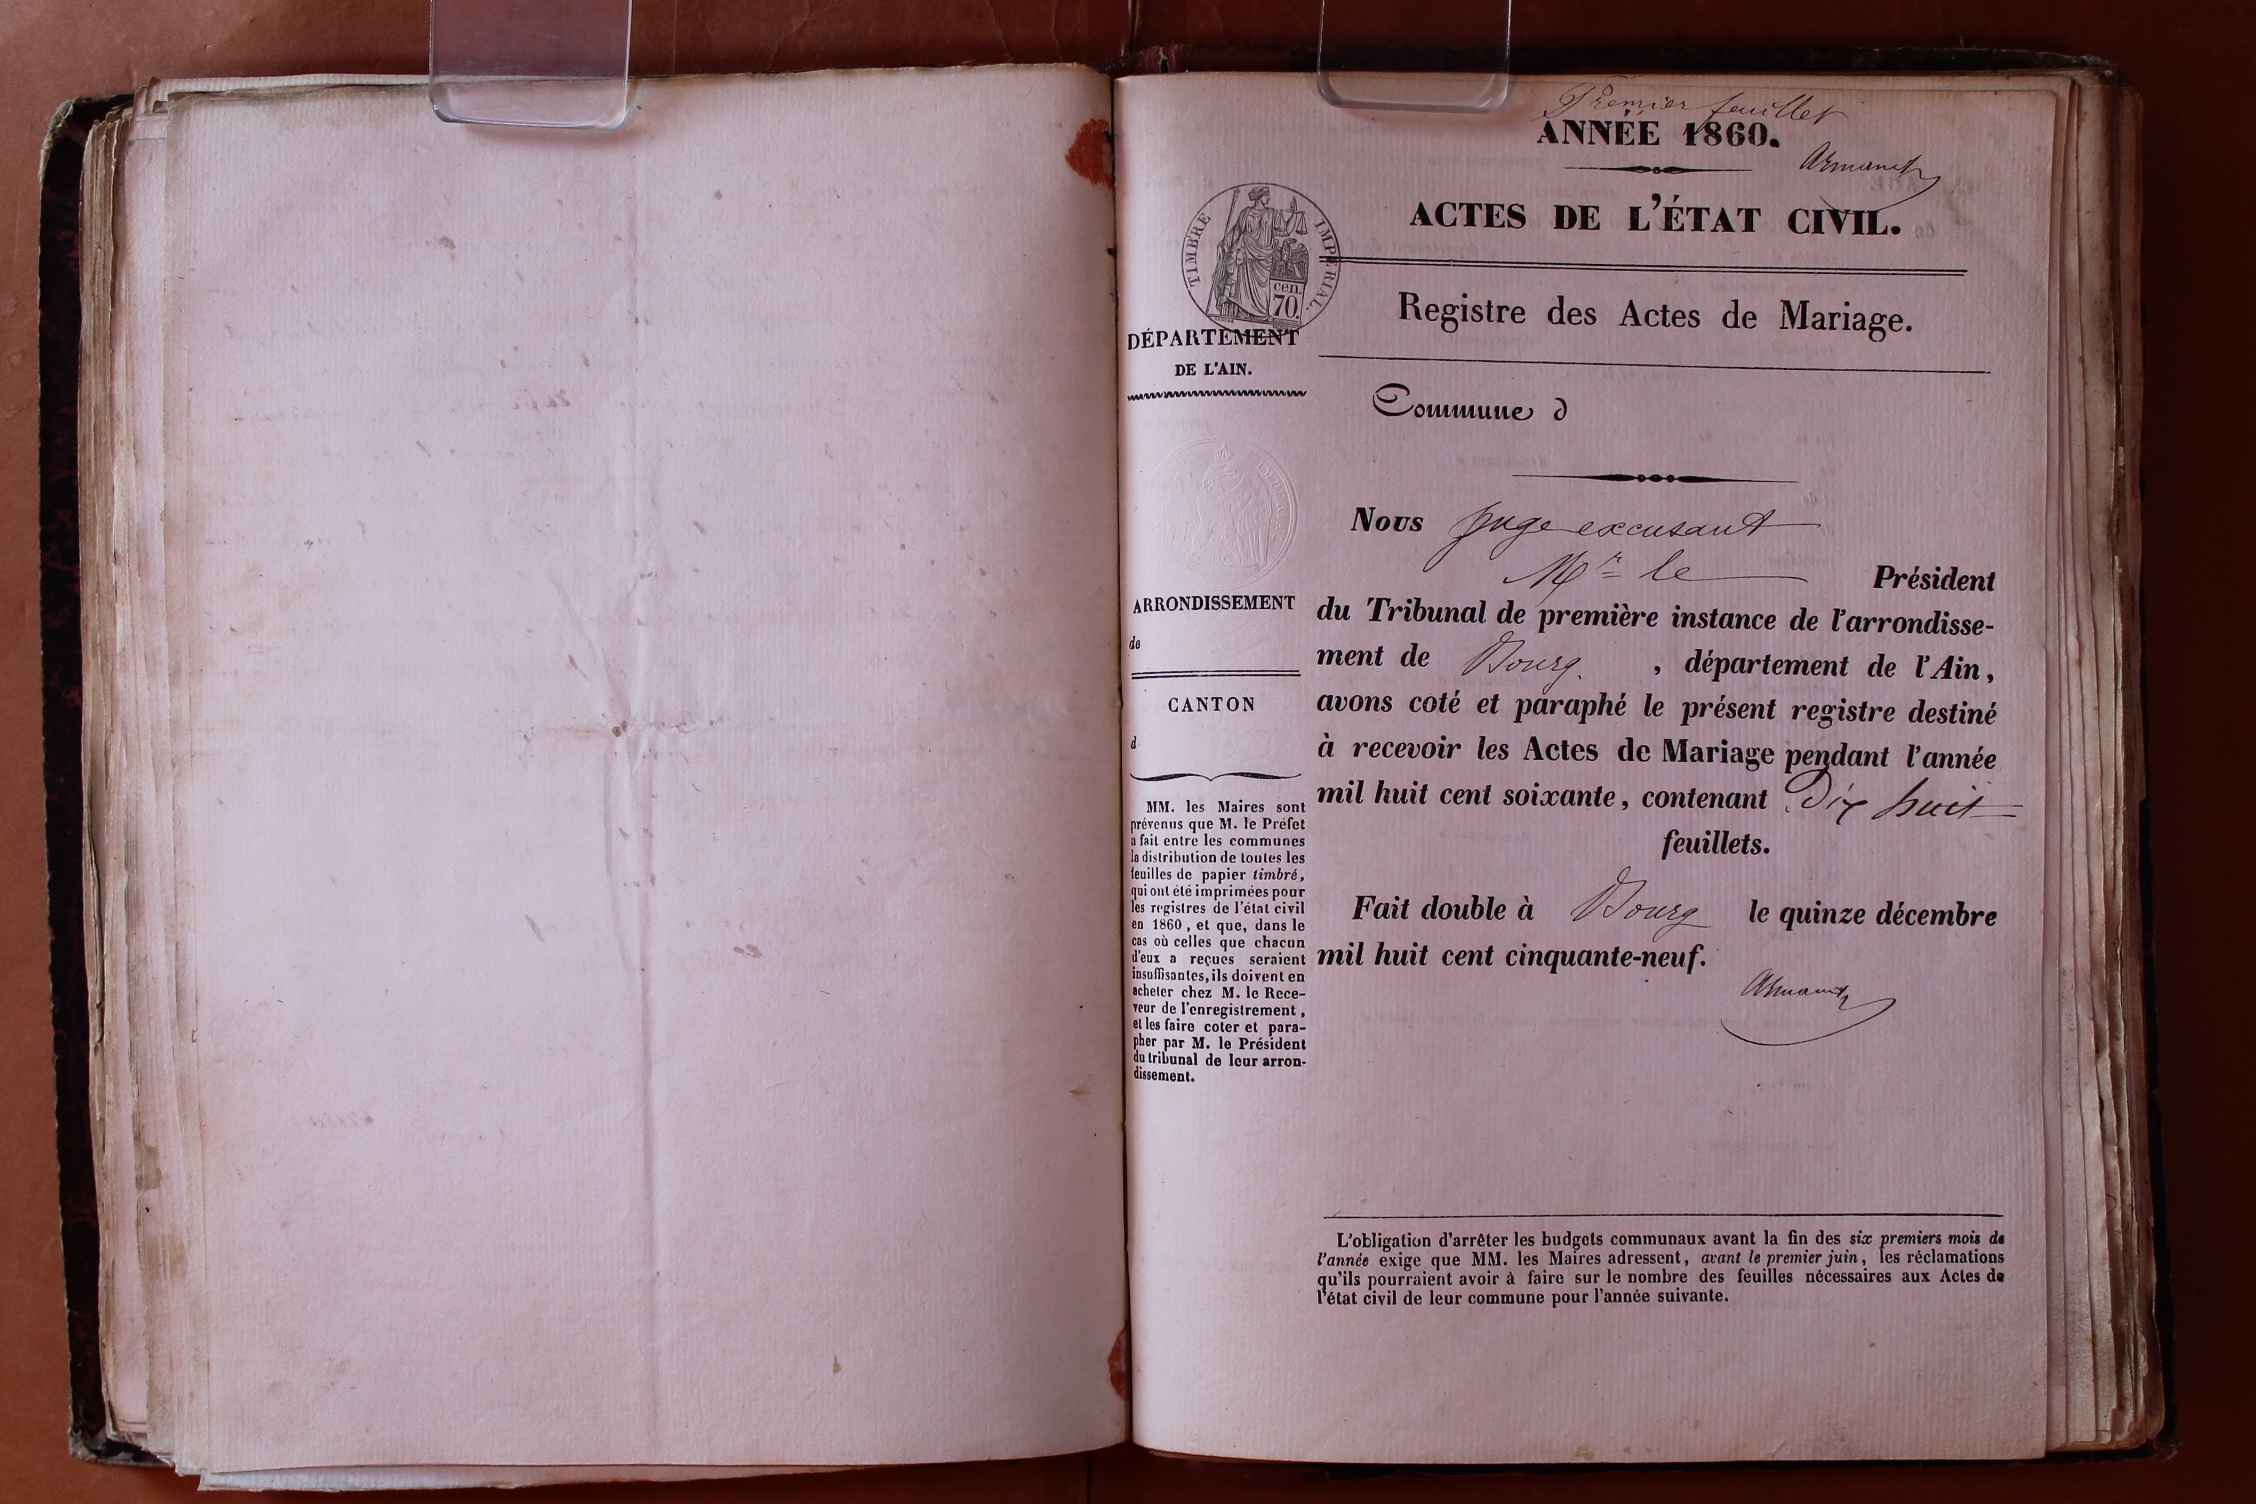 Premier feuillet
ANNÉE 1860.
Armand
ACTES DE L'ÉTAT CIVIL.
TIMBRE IMPÉRIAL.
cen.
70.
Registre des Actes de Mariage.
DÉPARTEMENT
DE L'AIN.
Commune d
ARRONDISSEMENT
de
CANTON
d
MM. les Maires sont
prévenus que M. le Préfet
a fait entre les communes
la distribution de toutes les
feuilles de papier timbré,
qui ont été imprimées pour
les registres de l'état civil
en 1860, et que, dans le
cas où celles que chacun
d'eux a reçues seraient
insuffisantes, ils doivent en
acheter chez M. le Rece-
veur de l'enregistrement,
et les faire coter et para-
pher par M. le Président
du tribunal de leur arron-
dissement.
Nous Juge excusant
Mr le Président
du Tribunal de première instance de l'arrondisse-
ment de Bourg. , département de l'Ain,
avons coté et paraphé le présent registre destiné
à recevoir les Actes de Mariage pendant l'année
mil huit cent soixante, contenant Dix huit
feuillets.
Fait double à Bourg le quinze décembre
mil huit cent cinquante-neuf.
Armand
L'obligation d'arrêter les budgets communaux avant la fin des six premiers mois de
l'année exige que MM. les Maires adressent, avant le premier juin, les réclamations
qu'ils pourraient avoir à faire sur le nombre des feuilles nécessaires aux Actes de
l'état civil de leur commune pour l'année suivante.